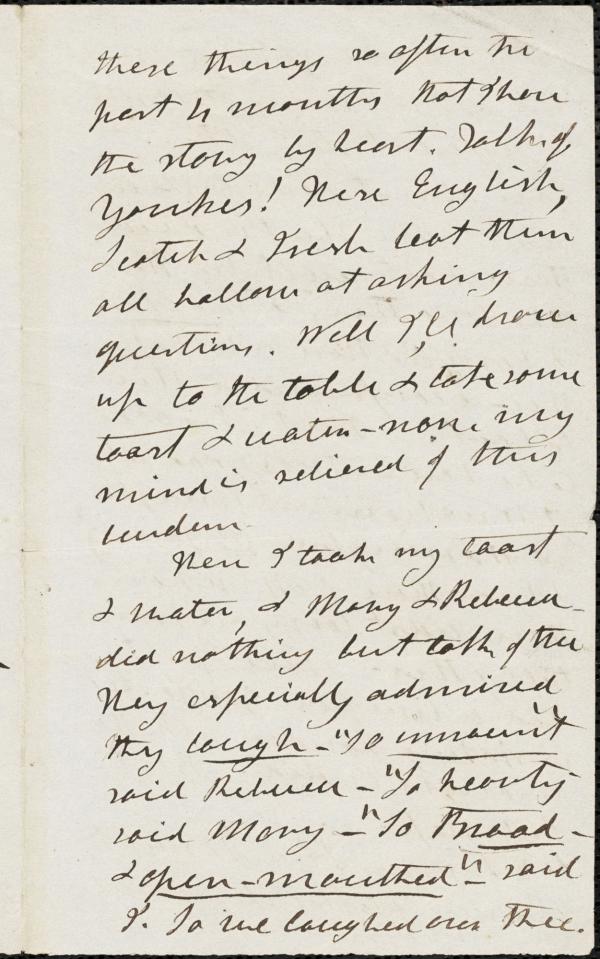 these things so often the
past 4 months that I have
the story by heart. Talk of
Yankees! These English,
Scotch & Irish beat them
all hallow at asking
questions. Well I'll draw
up to the table & take some
toast & water - now my
mind is relieved of this
burden.
Then I took my toast
& water, & Mary & Rebecca
did nothing but talk of thee
They especially admired
thy laugh - "So innocent"
said Rebecca - "So hearty
said Mary - "So Broad -
& open-mouthed" - said
I. So we laughed over thee.